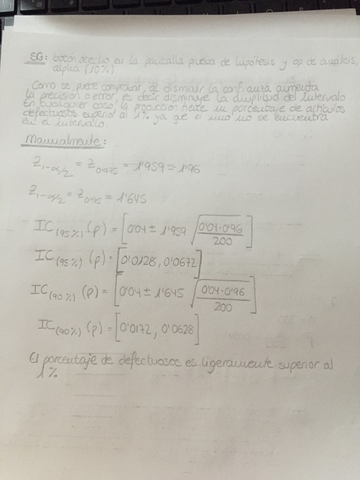 SG: botón derecho en la pantalla prueba de hipótesis y op de análisis,
alpha (10%)
Como se puede comprobar, al disminuir la confianza aumenta
la precisión o error, es decir disminuye la amplitud del intervalo
En cualquier caso, la producción tiene un porcentaje de artículos
defectuosos superior al 1% ya que el uno no se encuentra
en el intervalo.
Manualmente:
Z1-α/2 = Z0'975 = 1'959 ≈ 1'96
Z1-α/2 = Z0'95 = 1'645
IC(95%) (p) = [0'04 ± 1'959 √(0'04·0'96/200)]
IC(95%) (p) = [0'0128, 0'0672]
IC(90%) (p) = [0'04 ± 1'645 √(0'04·0'96/200)]
IC(90%) (p) = [0'0172, 0'0628]
El porcentaje de defectuosos es ligeramente superior al
1%